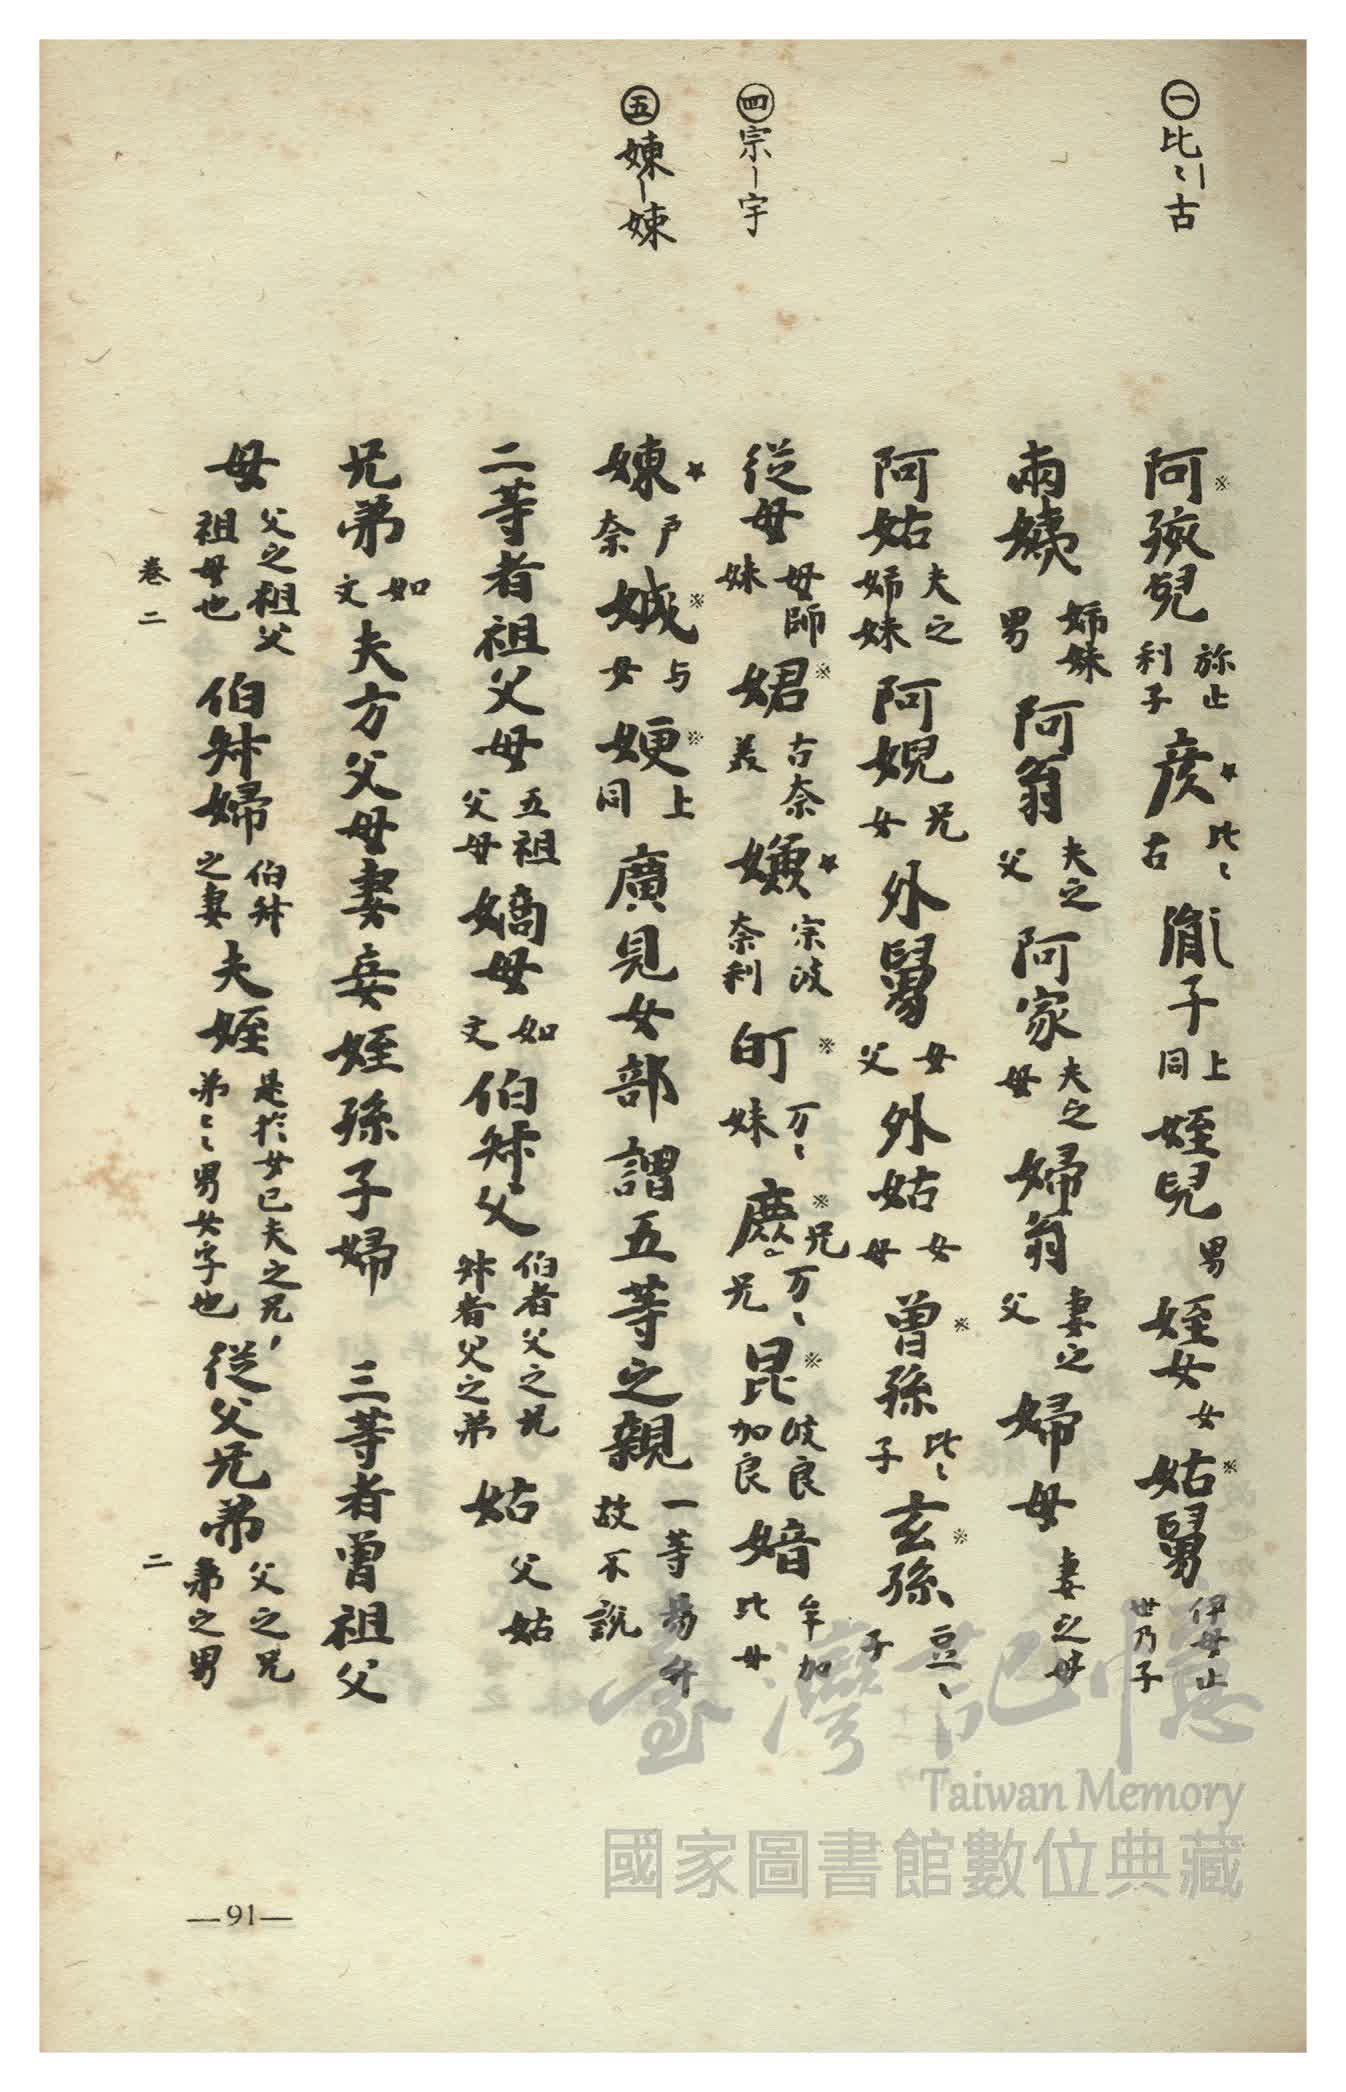 ㊀比〻｜古
㊃宗｜宇
㊄娕｜娕
阿孩兒 弥止利子 彦 比〻古 胤子 上同 姪兒 男 姪女 女 姑舅 伊母止世乃子
兩姨 姉妹男 阿翁 夫之父 阿家 夫之母 婦翁 妻之父 婦母 妻之母
阿姑 夫之姉妹 阿㛂 兄女 外舅 母父 外姑 女母 曾孫 比〻子 玄孫 豆〻子
從母 母師妹 㛦 古奈美 宗波奈利 町 万〻妹 兄万〻兄 昆 波良加良 㛺 牟加比女
娕 戸奈 娀 与女 㛐 上同 廣見女部 謂五等之親 一等易弁故不説
二等者祖父母 五祖父母 嫡母 如文 伯叔父 伯者父之兄叔者父之弟 姑 父姑
兄弟 如文 夫方父母妻妾姪孫子婦 三等者曾祖父
母 父之祖父祖母也 伯叔婦 伯叔之妻 夫姪 是於女已夫之兄弟〻男女字也 從父兄弟 父之兄弟之男
卷二
二
—91—
臺灣記憶
Taiwan Memory
國家圖書館數位典藏